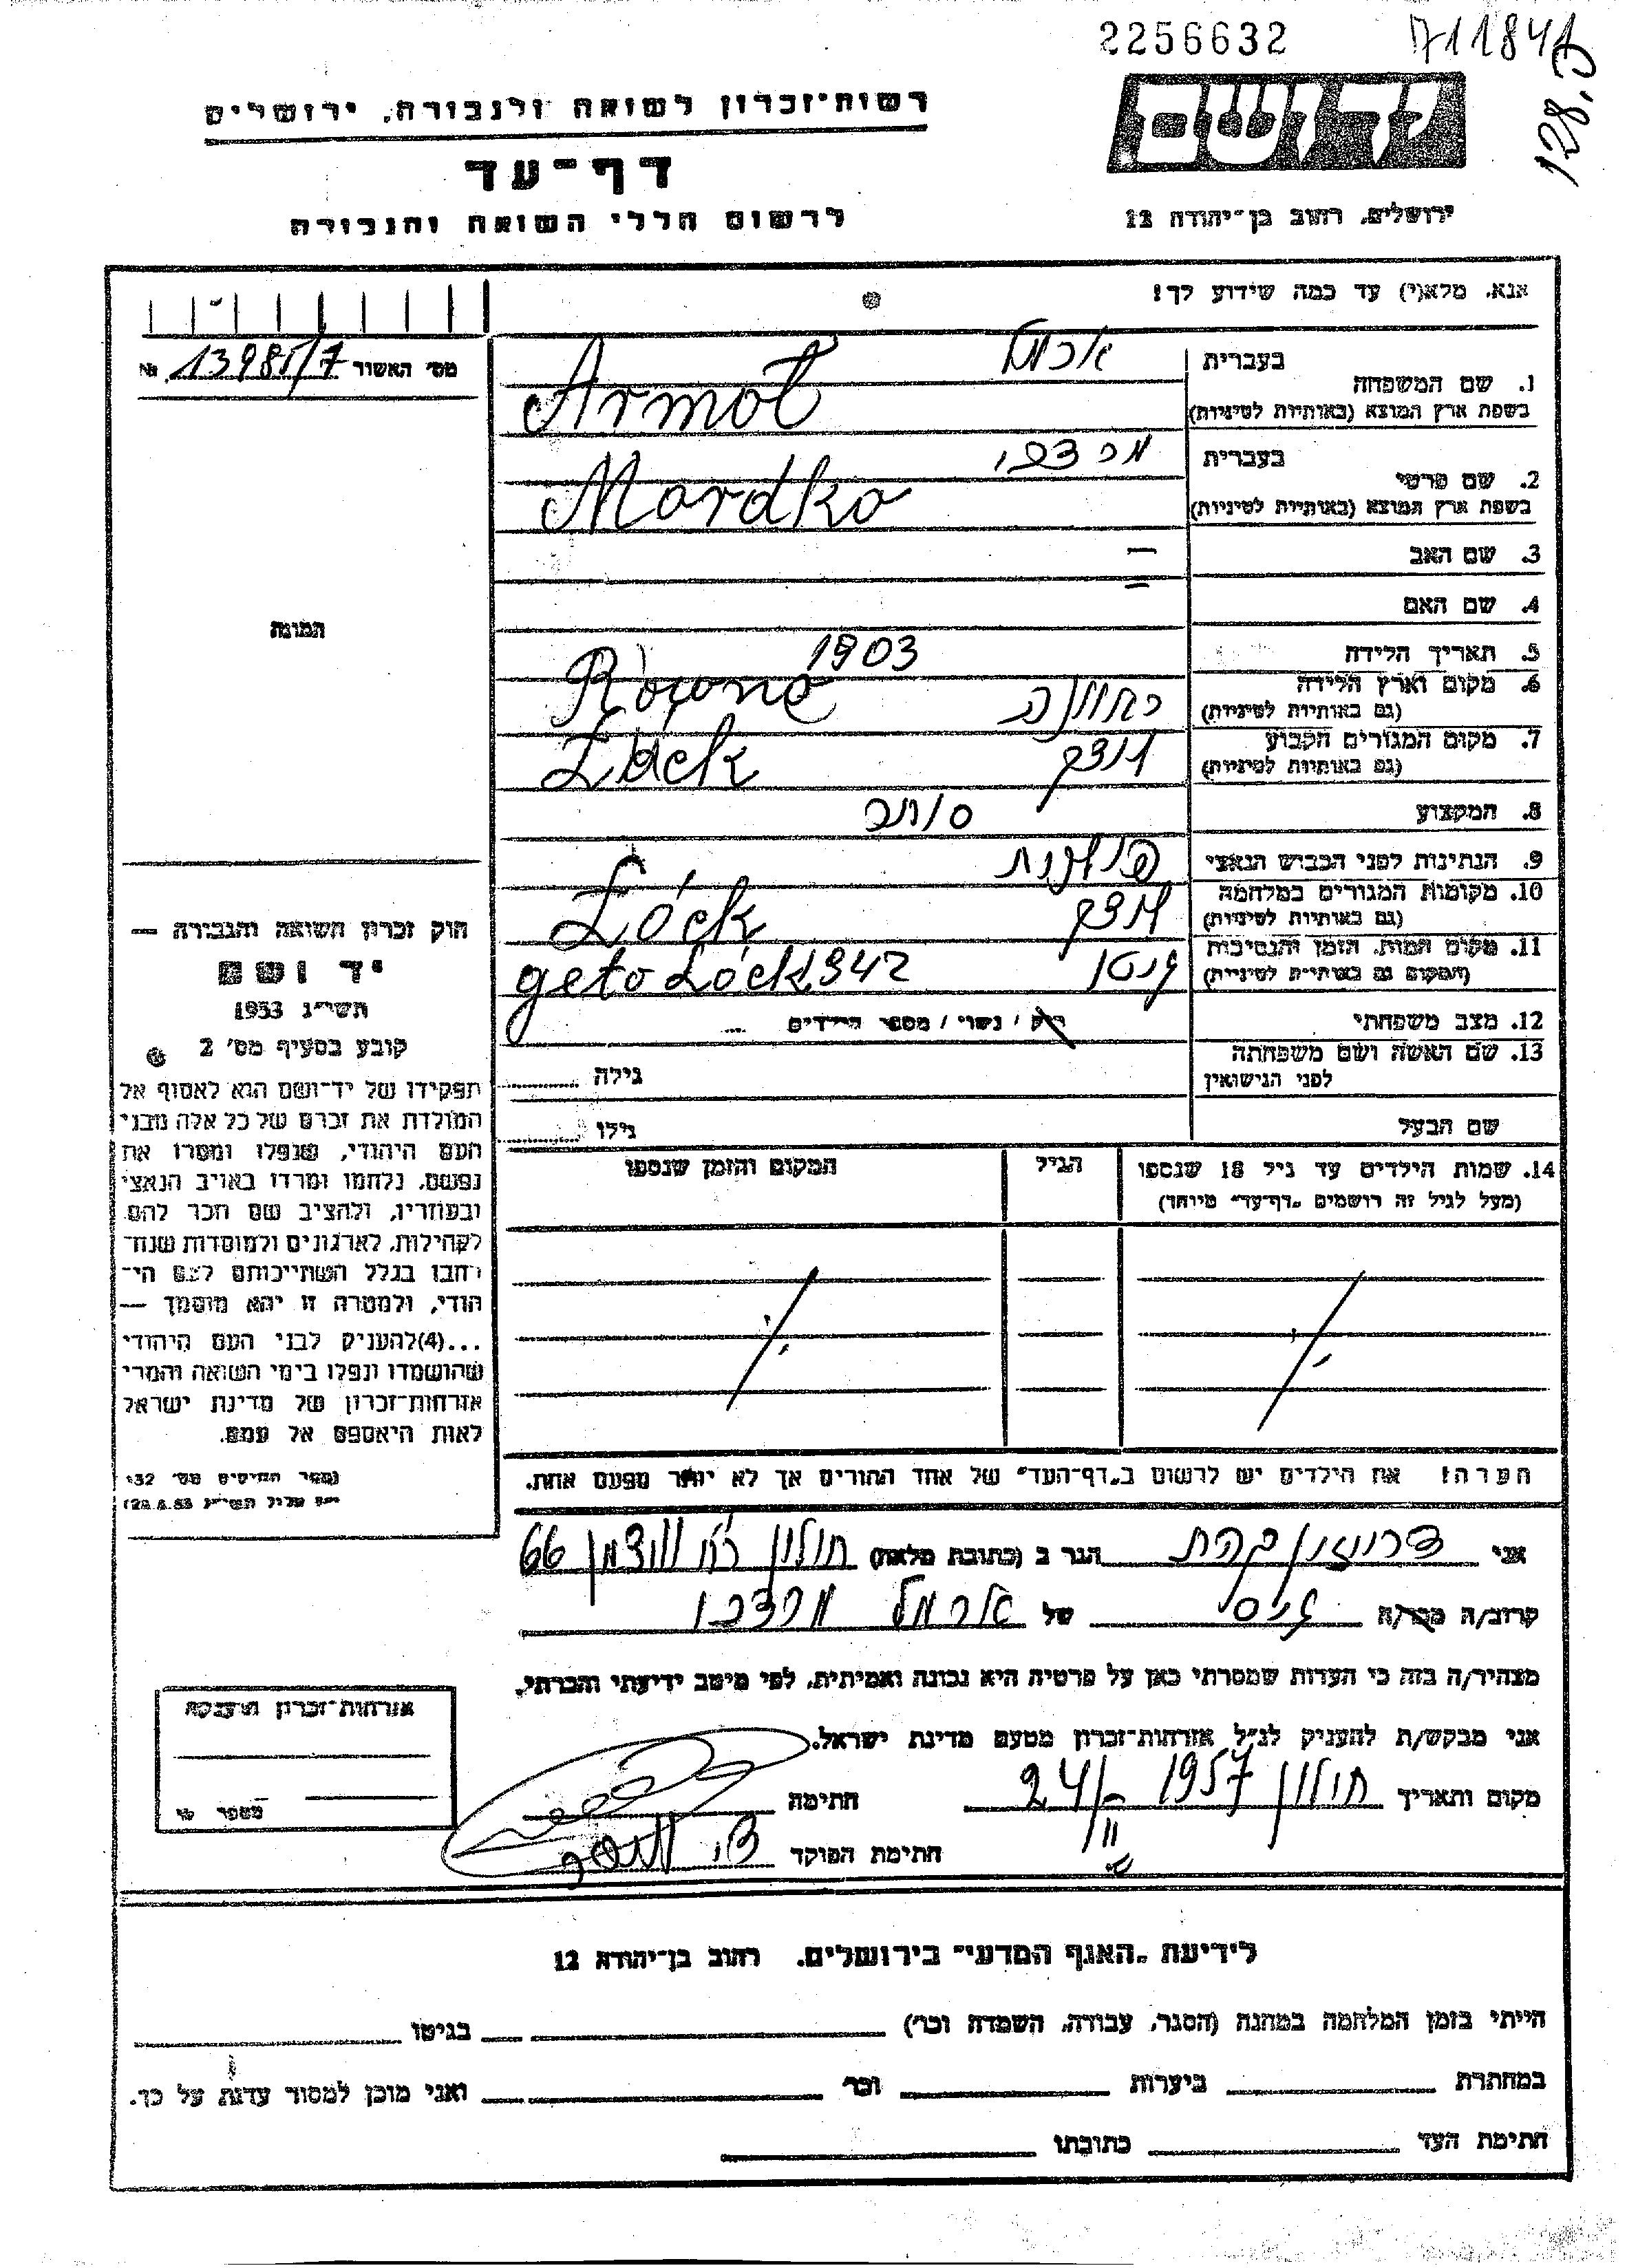 2256632
711841
128,3
רשות־זכרון לשואה ולגבורה, ירושלים
דף־עד
לרשום חללי השואה והגבורה
יד ושם
ירושלים, רחוב בן־יהודה 12
אנא, מלא(י) עד כמה שידוע לך!
מס' האשור 13985/7 №
1. שם המשפחה
בעברית ארמל
בשפת ארץ המוצא (באותיות לטיניות) Armoł
2. שם פרטי
בעברית מרדכי
בשפת ארץ המוצא (באותיות לטיניות) Mordko
3. שם האב —
4. שם האם =
5. תאריך הלידה 1903
6. מקום וארץ הלידה
(גם באותיות לטיניות) רוונה Równo
7. מקום המגורים הקבוע
(גם באותיות לטיניות) לוצק Łuck
8. המקצוע סוחר
9. הנתינות לפני הכבוש הנאצי פולנית
10. מקומות המגורים במלחמה
(גם באותיות לטיניות) לוצק Łóck
11. מקום המות, הזמן והנסיבות
(המקום גם באותיות לטיניות) גטו geto Łóck 1942
12. מצב משפחתי רוק / נשוי / מספר הילדים
13. שם האשה ושם משפחתה
לפני הנישואין גילה
שם הבעל גילו
14. שמות הילדים עד גיל 18 שנספו
(מעל לגיל זה רושמים „דף־עד” מיוחד)
הגיל
המקום והזמן שנספו
הערה! את הילדים יש לרשום ב„דף־העד” של אחד ההורים אך לא יותר מפעם אחת.
התמונה
חוק זכרון השואה והגבורה —
יד ושם
תשי״ג 1953
קובע בסעיף מס' 2
תפקידו של יד־ושם הוא לאסוף אל
המולדת את זכרם של כל אלה מבני
העם היהודי, שנפלו ומסרו את
נפשם, נלחמו ומרדו באויב הנאצי
ובעוזריו, ולהציב שם וזכר להם
לקהילות, לארגונים ולמוסדות שנח־
רבו בגלל השתייכותם לעם הי־
הודי, ולמטרה זו יהא מוסמך —
...(4)להעניק לבני העם היהודי
שהושמדו ונפלו בימי השואה והמרי
אזרחות־זכרון של מדינת ישראל
לאות היאספם אל עמם.
(ספר החוקים מס' 132
י״ז אלול תשי״ג 28.8.53)
אני הגר ב (כתובת מלאה) חולון 66
קרוב/ה מכר/ה גיס של ארמל מרדכי
מצהיר/ה בזה כי העדות שמסרתי כאן על פרטיה היא נכונה ואמיתית, לפי מיטב ידיעתי והכרתי.
אני מבקש/ת להעניק לנ״ל אזרחות־זכרון מטעם מדינת ישראל.
מקום ותאריך חולון 1957 24/II חתימה
חתימת הפוקד
אזרחות־זכרון הוענקה
מספר
לידיעת „האגף המדעי” בירושלים. רחוב בן־יהודה 12
הייתי בזמן המלחמה במחנה (הסגר, עבודה, השמדה וכו') בגיטו
במחתרת ביערות וכו' ואני מוכן למסור עדות על כך.
חתימת העד כתובתו